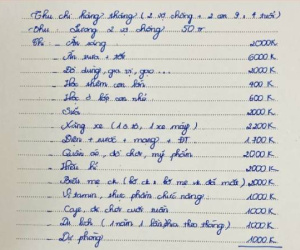 Thu chi hàng tháng (2 vợ chồng + 2 con 9 & 4 tuổi)
- Thu: Lương 2 vợ chồng 50 tr
- Chi - Ăn sáng 2000K
- Ăn trưa + tối 6000K
- Đồ dùng, gia vị, gạo... 2000K
- Học thêm con lớn 900K
- Học ở lớp con nhỏ 600K
- Sữa 2000K
- Xăng xe (1 ô tô, 1 xe máy) 2200K
- Điện + nước + mạng + ĐT 1700K
- Quần áo, đồ chơi, mỹ phẩm 2000K
- Hiếu hỉ 2000K
- Biếu mẹ ck (bố ck & bố mẹ vk đã mất) 2000K
- Vitamin, thực phẩm chức năng 1000K
- Cafe, đi chơi cuối tuần 1000K
- Du lịch (1 năm 1 lần, chia theo tháng) 1000K
- Dự phòng 1000K